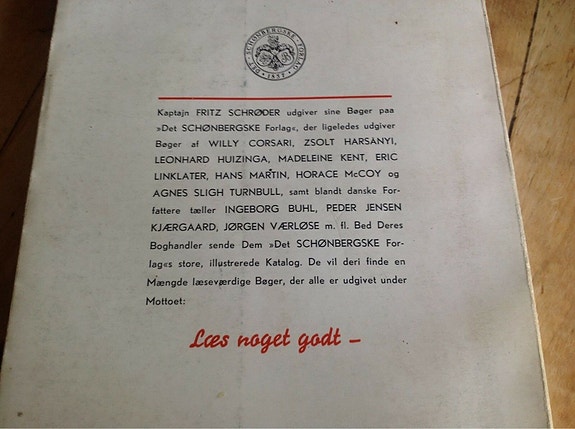 DET SCHØNBERGSKE FORLAG
1857
Kaptajn FRITZ SCHRØDER udgiver sine Bøger paa
»Det SCHØNBERGSKE Forlag«, der ligeledes udgiver
Bøger af WILLY CORSARI, ZSOLT HARSANYI,
LEONHARD HUIZINGA, MADELEINE KENT, ERIC
LINKLATER, HANS MARTIN, HORACE McCOY og
AGNES SLIGH TURNBULL, samt blandt danske For-
fattere tæller INGEBORG BUHL, PEDER JENSEN
KJÆRGAARD, JØRGEN VÆRLØSE m. fl. Bed Deres
Boghandler sende Dem »Det SCHØNBERGSKE For-
lag«s store, illustrerede Katalog. De vil deri finde en
Mængde læseværdige Bøger, der alle er udgivet under
Mottoet:
Læs noget godt –